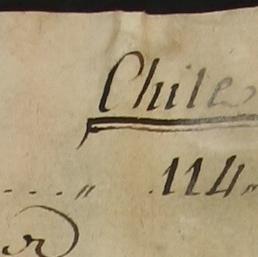 Chile
....„ 114„